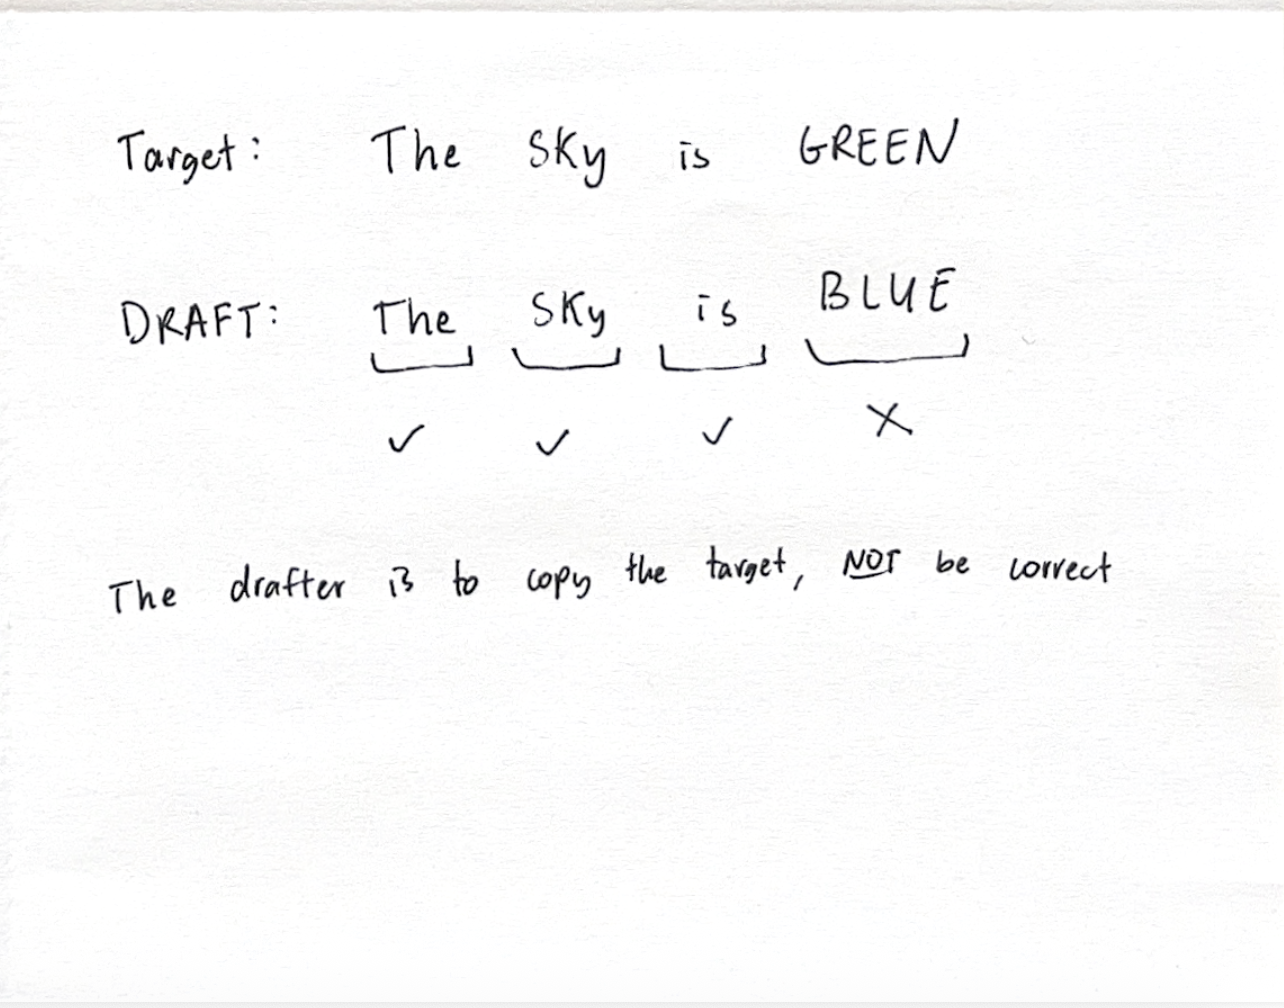 Target: The Sky is GREEN
DRAFT: The Sky is BLUE
✓ ✓ ✓ X
The drafter is to copy the target, NOT be correct